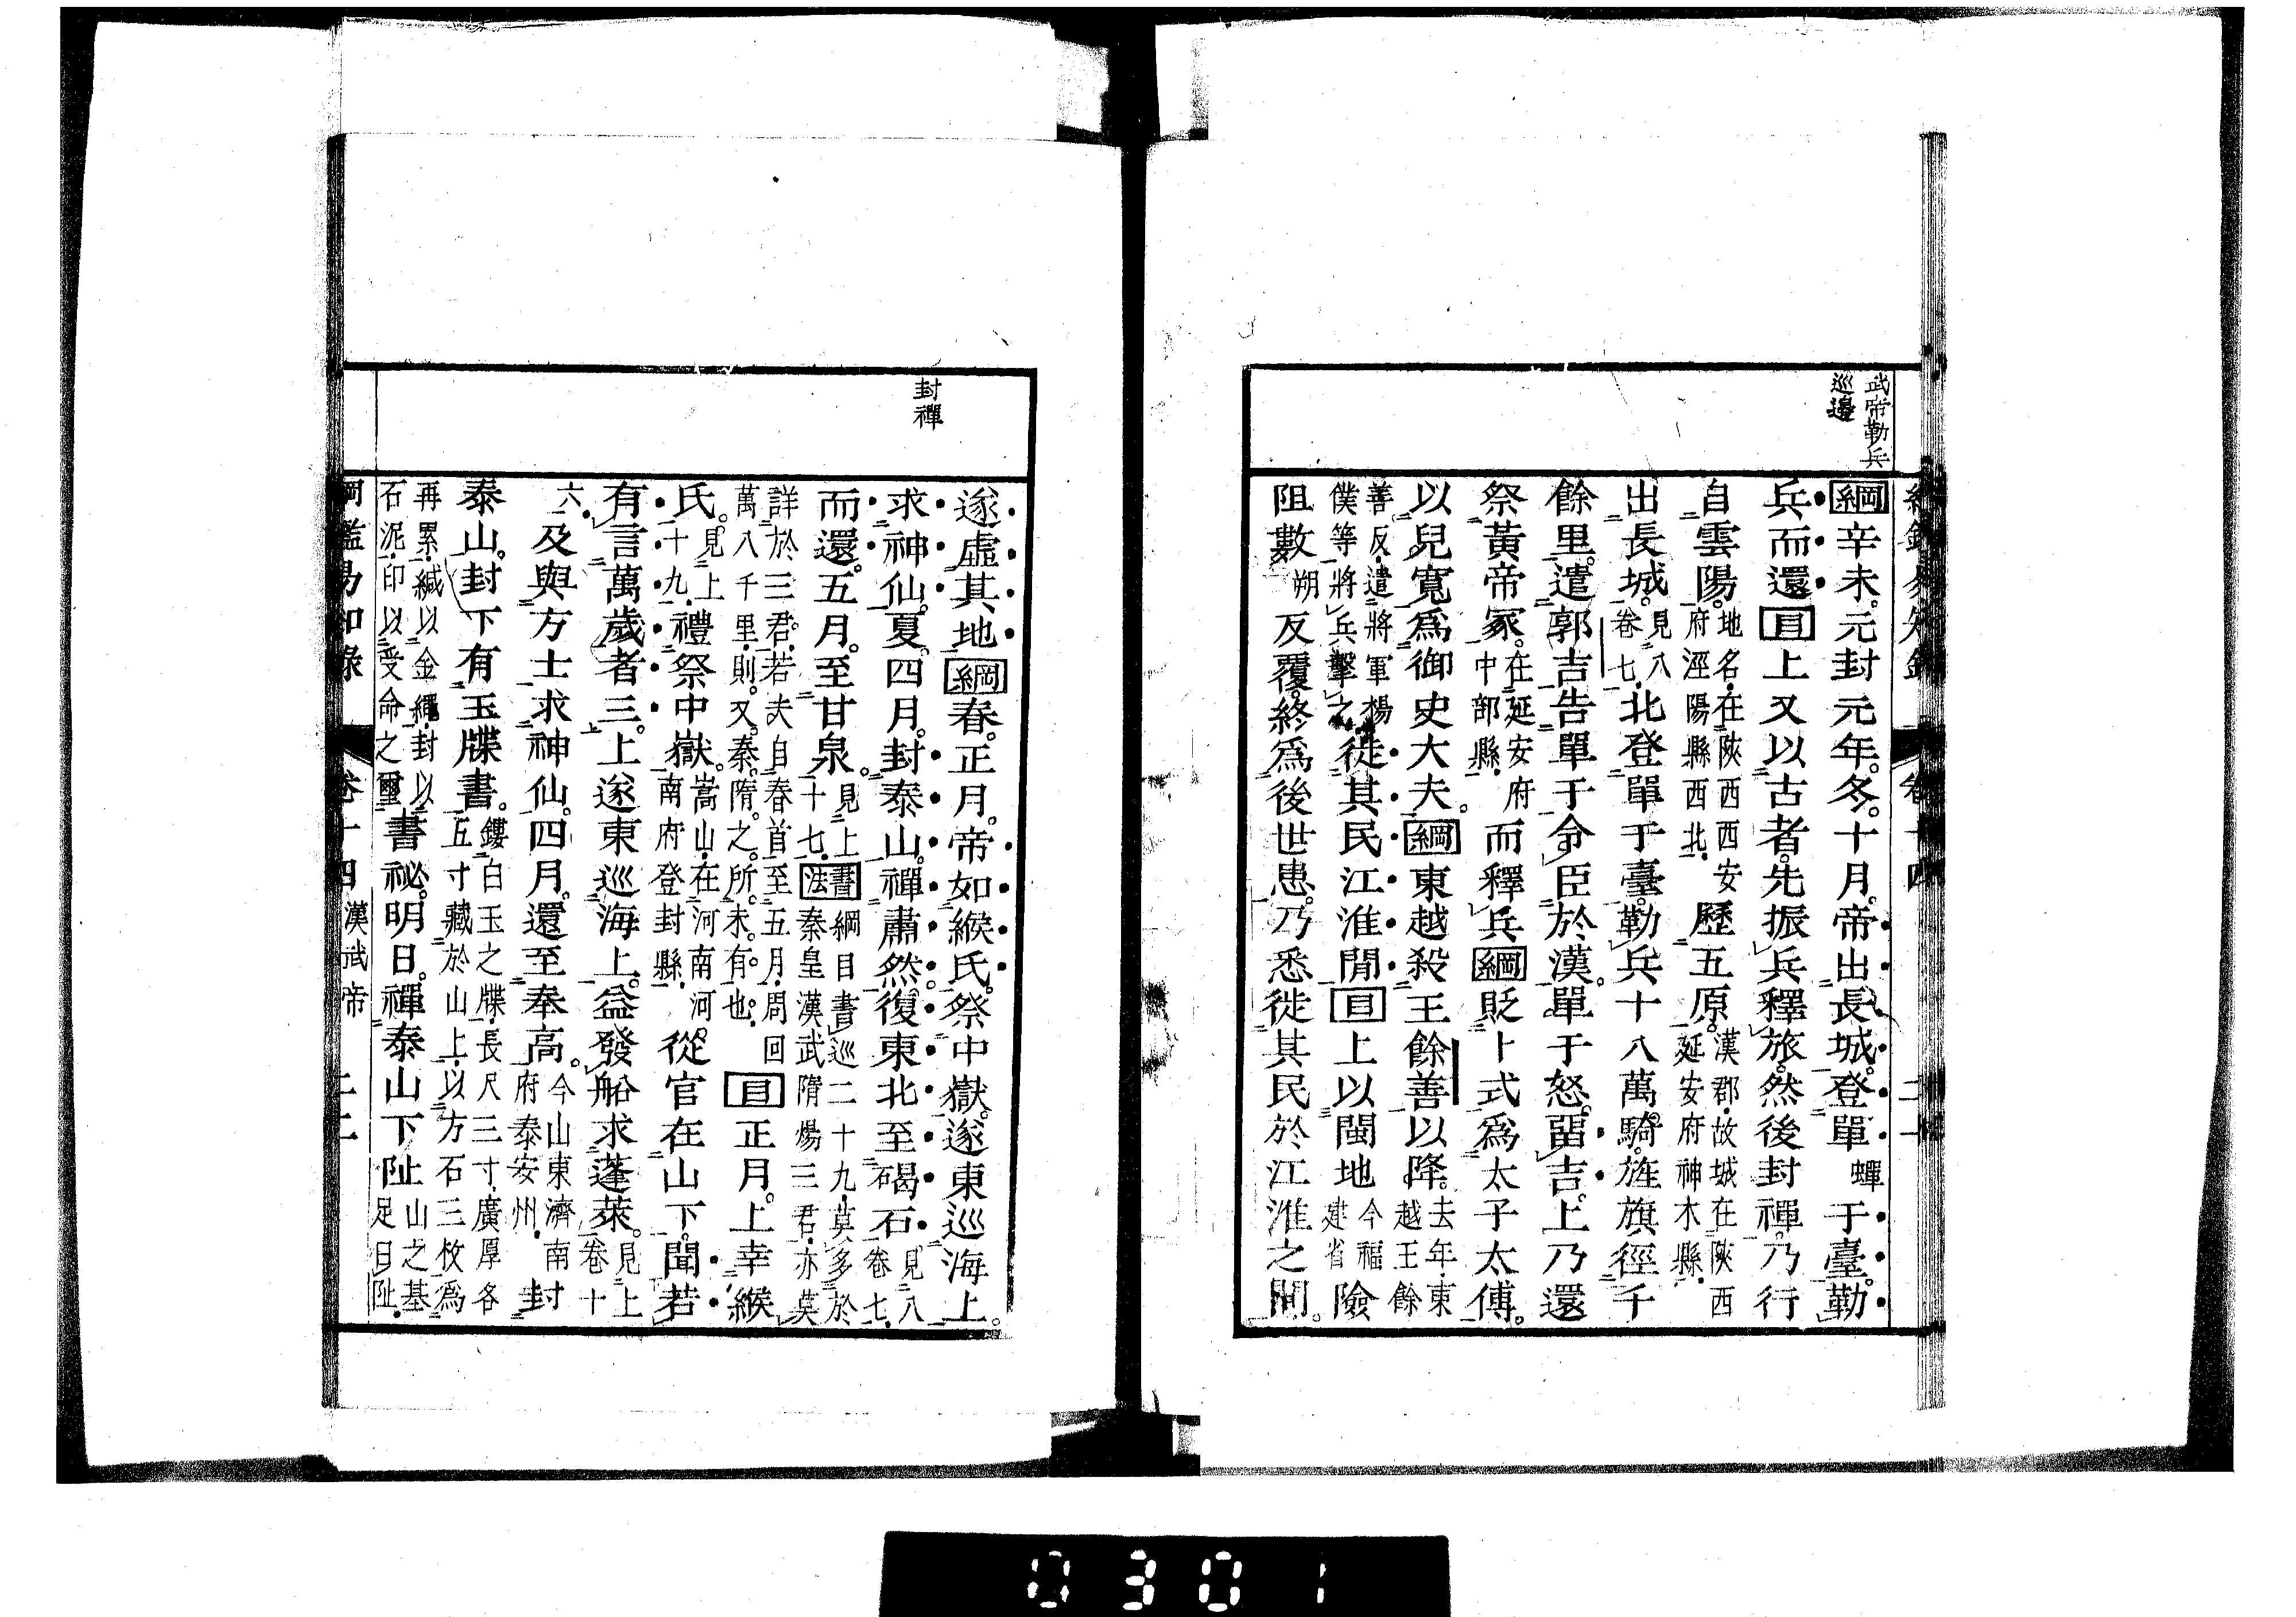 武帝勒兵
巡邊
綱辛未元封元年冬十月帝出長城登單蟬于臺勒
兵而還目上又以古者先振兵釋旅然後封禪乃行
自雲陽地名在陝西西安府涇陽縣西北歷五原漢郡故城在陝西延安府神木縣
出長城見八卷七北登單于臺勒兵十八萬騎旌旗徑千
餘里遣郭吉告單于令臣於漢單于怒留吉上乃還
祭黃帝冢在延安府中部縣而釋兵綱貶卜式爲太子太傅
以兒寬爲御史大夫綱東越殺王餘善以降去年東越王餘
善反遣將軍楊僕等將兵擊之徙其民江淮閒目上以閩地今福建省險
阻數朔反覆終爲後世患乃悉徙其民於江淮之閒
綱鑑易知錄 卷十四
封禪
遂虛其地綱春正月帝如緱氏祭中嶽遂東巡海上
求神仙夏四月封泰山禪肅然復東北至碣石見八卷七
而還五月至甘泉見上十七書法綱目書巡二十九莫多於秦皇漢武隋煬三君亦莫
詳於三君若夫自春首至五月周回萬八千里則又秦隋之所未有也目正月上幸緱
氏見上十九禮祭中嶽嵩山在河南河南府登封縣從官在山下聞若
有言萬歲者三上遂東巡海上益發船求蓬萊見上卷十
六及與方士求神仙四月還至奉高今山東濟南府泰安州封
泰山封下有玉牒書鏤白玉之牒長尺三寸廣厚各五寸藏於山上以方石三枚爲
再累緘以金繩封以石泥印以受命之璽書祕明日禪泰山下阯山之基足曰阯
綱鑑易知錄 卷十四 漢武帝 二二